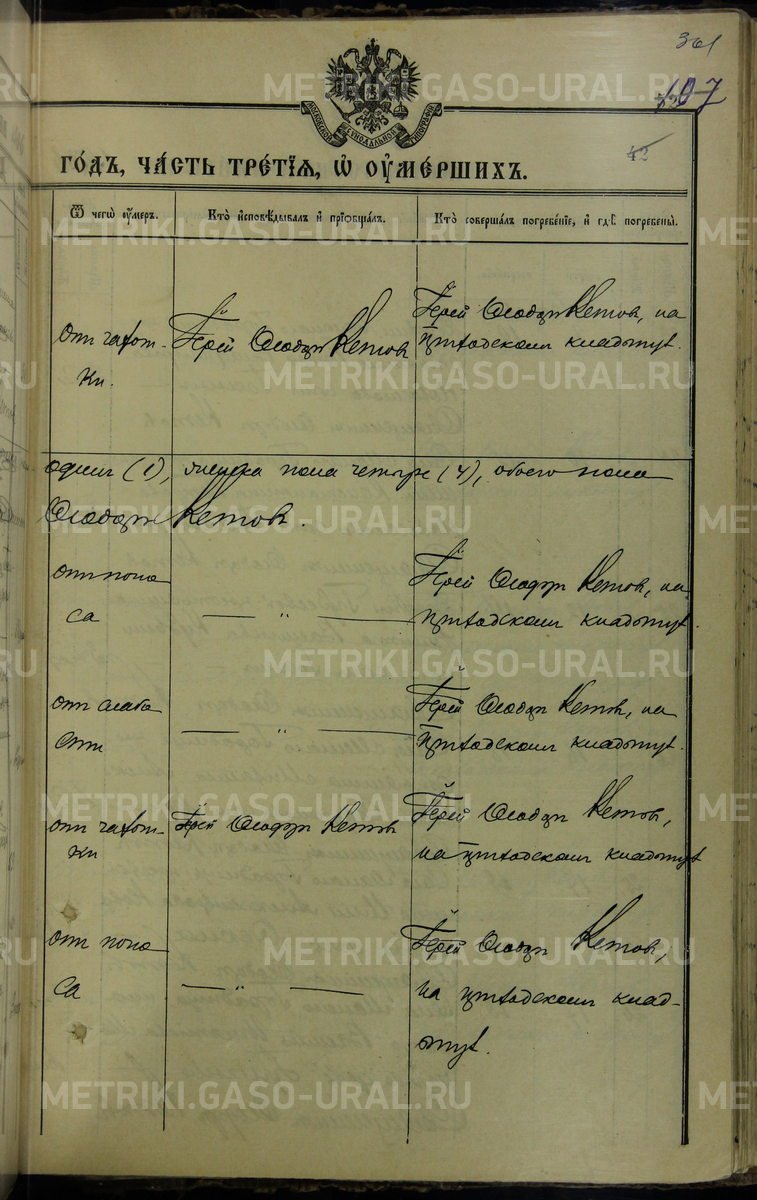 361
107
42
МОСКОВСКОЙ СѴНОДАЛЬНОЙ ТИПОГРАФІИ
ГО́ДЪ, ЧА́СТЬ ТРЕ́ТІѦ, Ѽ ОУ҆МЕ́РШИХЪ.
Ѿ чегѡ̀ оу҆́меръ.
Кто̀ и҆сповѣ́дывалъ и҆ прїѡбща́лъ.
Кто̀ соверша́лъ погребе́нїе, и҆ гдѣ̀ погребены̀.
отъ чахот-
ки.
Іерей Ѳеодоръ Кетовъ
Іерей Ѳеодоръ Кетовъ, на
приходскомъ кладбищѣ.
одинъ (1), женска пола четыре (4), обоего пола
Ѳеодоръ Кетовъ.
отъ поно
са
— „ —
Іерей Ѳеодоръ Кетовъ, на
приходскомъ кладбищѣ.
отъ слабо
сти
— „ —
Іерей Ѳеодоръ Кетовъ, на
приходскомъ кладбищѣ.
отъ чахот-
ки
Іерей Ѳеодоръ Кетовъ
Іерей Ѳеодоръ Кетовъ,
на приходскомъ кладбищѣ
отъ поно
са
— „ —
Іерей Ѳеодоръ Кетовъ,
на приходскомъ клад-
бищѣ.
METRIKI.GASO-URAL.RU